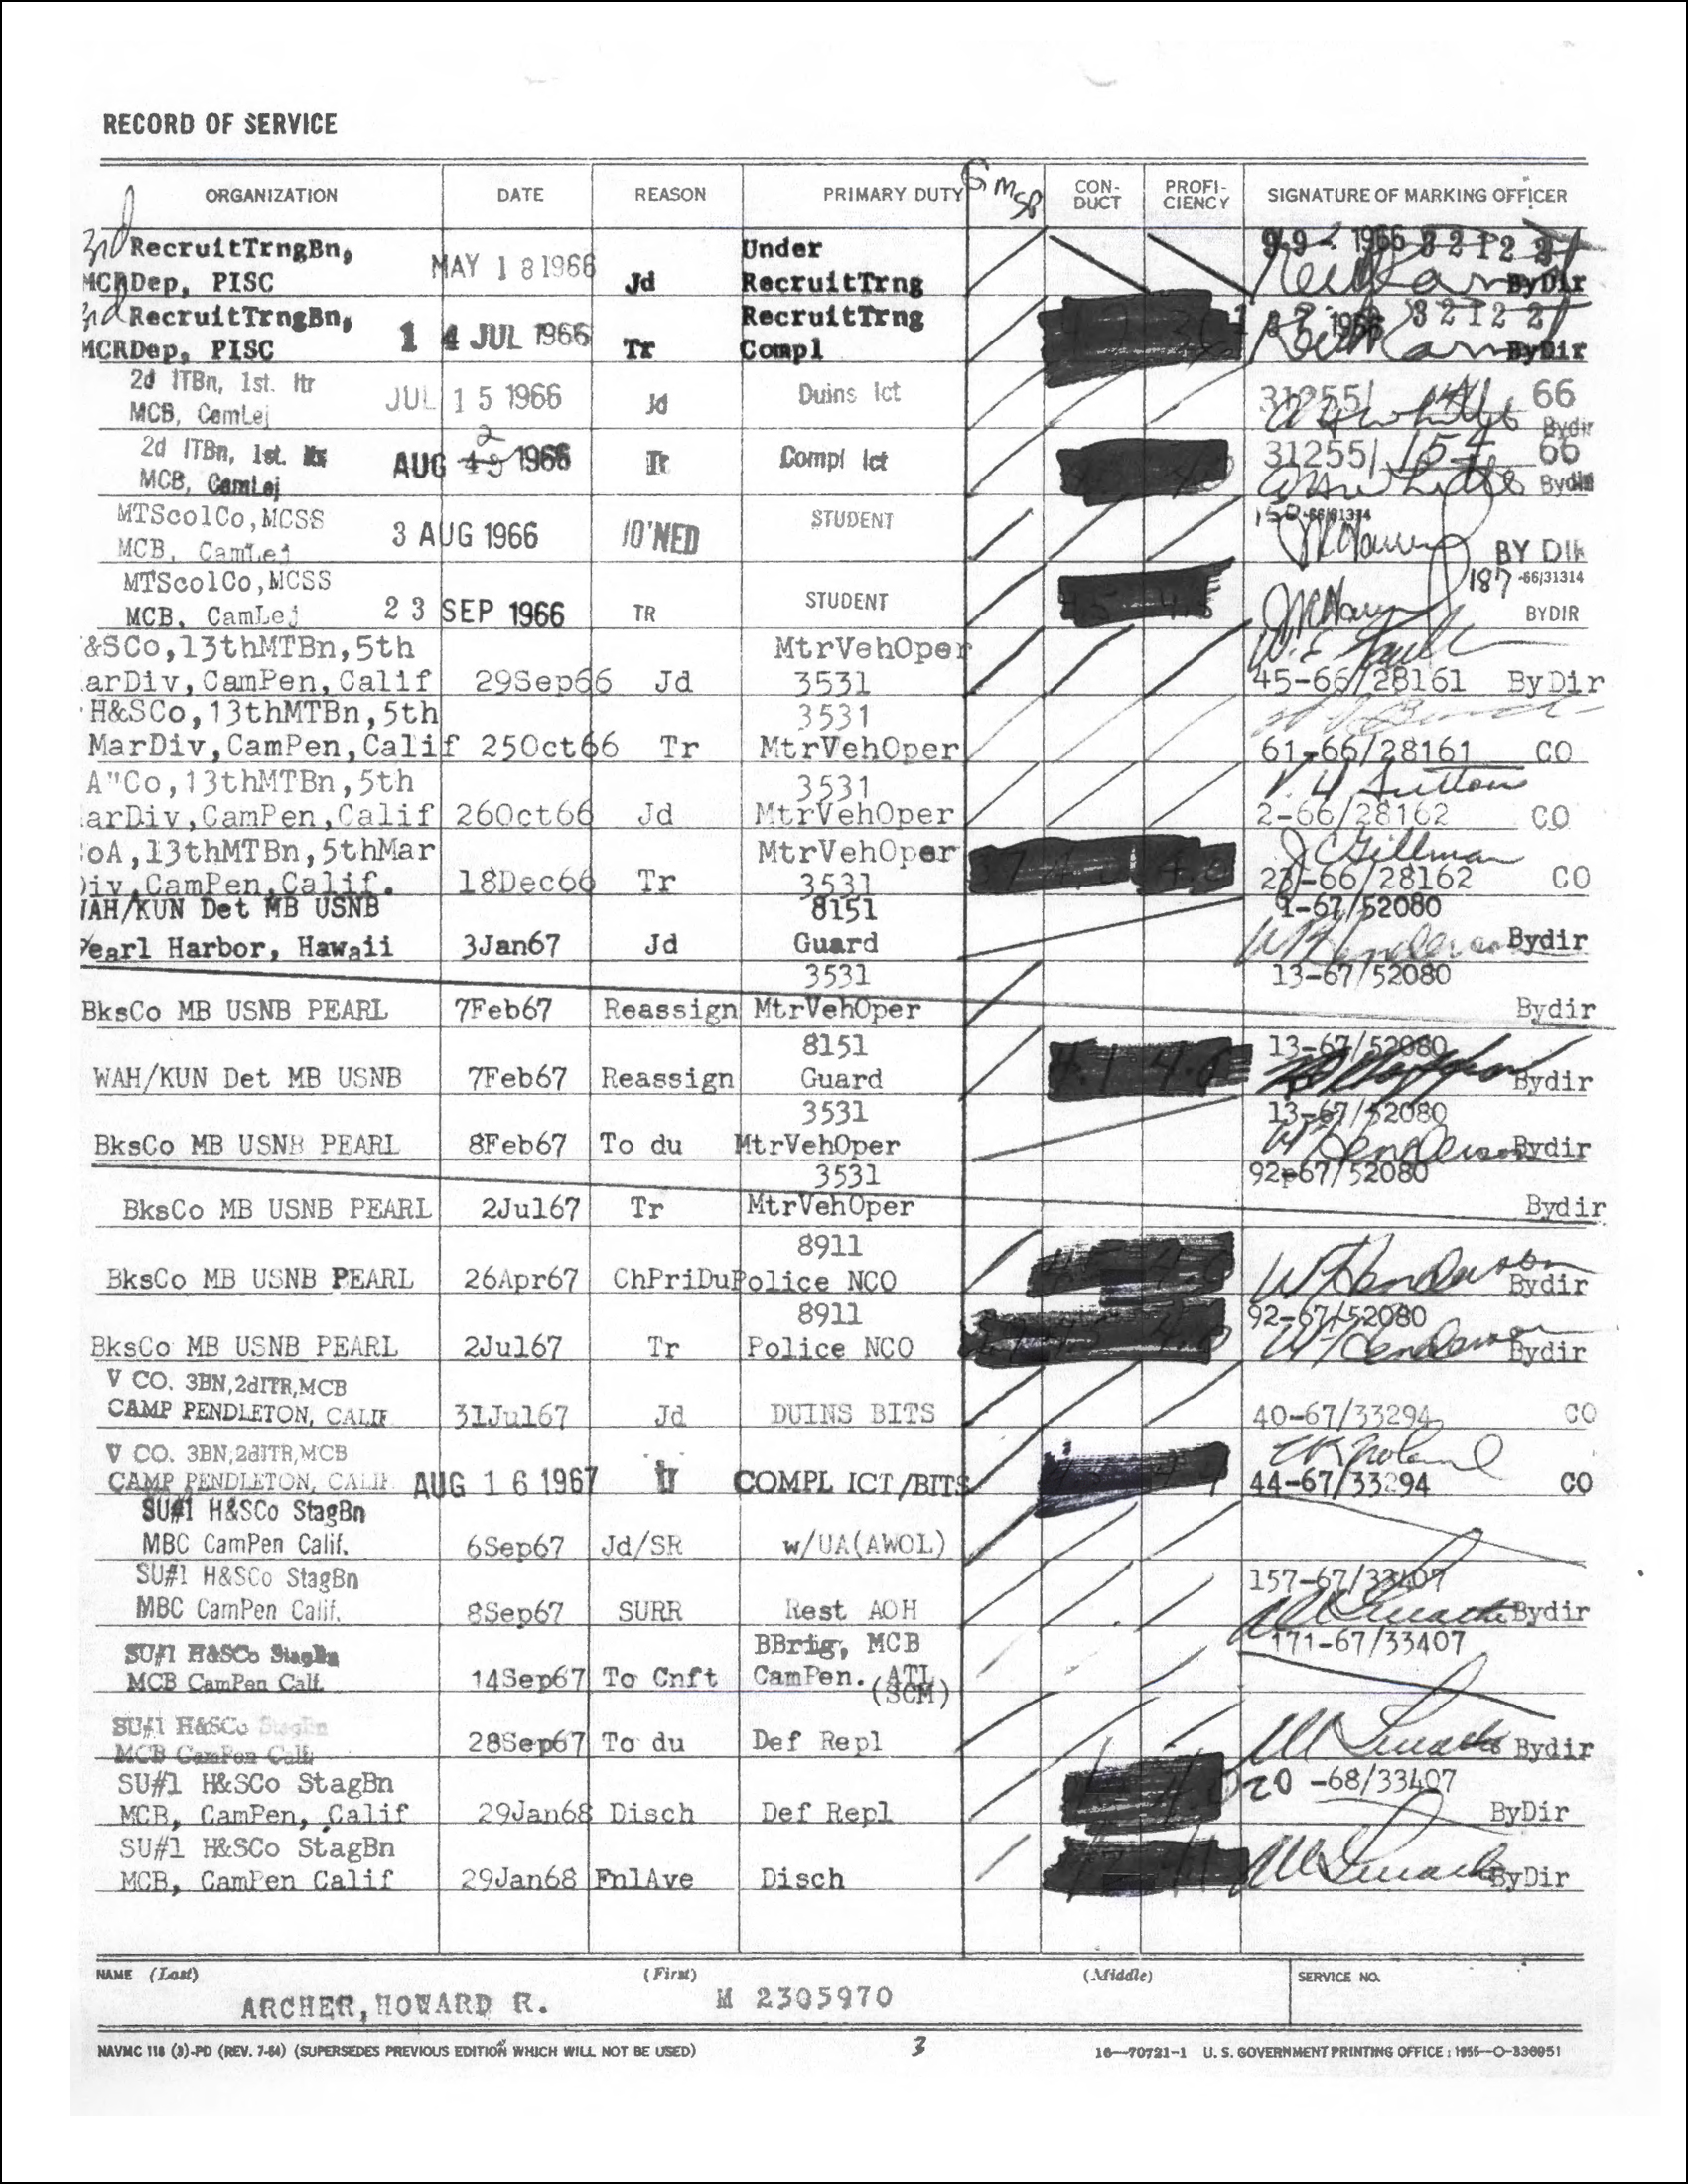 RECORD OF SERVICE
ORGANIZATION DATE REASON PRIMARY DUTY GMSP CON-DUCT PROFI-CIENCY SIGNATURE OF MARKING OFFICER
3rd RecruitTrngBn, Under
MCRDep, PISC MAY 18 1966 Jd RecruitTrng ByDir
3rd RecruitTrngBn, RecruitTrng
MCRDep, PISC 14 JUL 1966 Tr Compl ByDir
2d ITBn, 1st. Itr 31255/ 66
MCB, CamLej JUL 15 1966 Jd Duins Ict Bydir
2d ITBn, 1st. 31255/ 154 66
MCB, CamLej AUG 2 1966 Tr Compl Ict Bydir
MTScolCo,MCSS STUDENT
MCB, CamLej 3 AUG 1966 JO'NED BY DIR
MTScolCo,MCSS 187 -66/31314
MCB, CamLej 23 SEP 1966 TR STUDENT BYDIR
&SCo,13thMTBn,5th MtrVehOper
arDiv,CamPen,Calif 29Sep66 Jd 3531 45-66/28161 ByDir
H&SCo,13thMTBn,5th 3531
MarDiv,CamPen,Calif 25Oct66 Tr MtrVehOper 61-66/28161 CO
A"Co,13thMTBn,5th 3531 V. H Sutton
arDiv,CamPen,Calif 26Oct66 Jd MtrVehOper 2-66/28162 CO
oA,13thMTBn,5thMar MtrVehOper J C Gillman
Div,CamPen,Calif. 18Dec66 Tr 3531 23-66/28162 CO
WAH/KUN Det MB USNB 8151 1-67/52080
Pearl Harbor, Hawaii 3Jan67 Jd Guard W Henderson Bydir
3531 13-67/52080
BksCo MB USNB PEARL 7Feb67 Reassign MtrVehOper Bydir
8151 13-67/52080
WAH/KUN Det MB USNB 7Feb67 Reassign Guard Bydir
3531 13-67/52080
BksCo MB USNB PEARL 8Feb67 To du MtrVehOper W Henderson Bydir
3531 92-67/52080
BksCo MB USNB PEARL 2Jul67 Tr MtrVehOper Bydir
8911
BksCo MB USNB PEARL 26Apr67 ChPriDu Police NCO W Henderson Bydir
8911 92-67/52080
BksCo MB USNB PEARL 2Jul67 Tr Police NCO W Henderson Bydir
V CO. 3BN,2dITR,MCB
CAMP PENDLETON, CALIF 31Jul67 Jd DUINS BITS 40-67/33294 CO
V CO. 3BN,2dITR,MCB
CAMP PENDLETON, CALIF. AUG 16 1967 tr COMPL ICT/BITS 44-67/33294 CO
SU#1 H&SCo StagBn
MBC CamPen Calif. 6Sep67 Jd/SR w/UA(AWOL)
SU#1 H&SCo StagBn 157-67/33407
MBC CamPen Calif. 8Sep67 SURR Rest AOH Bydir
SU#1 H&SCo StagBn BBrig, MCB 171-67/33407
MCB CamPen Calif. 14Sep67 To Cnft CamPen. ATL
(SCM)
SU#1 H&SCo StagBn
MCB CamPen Calif. 28Sep67 To du Def Repl Bydir
SU#1 H&SCo StagBn 20 -68/33407
MCB, CamPen, Calif 29Jan68 Disch Def Repl ByDir
SU#1 H&SCo StagBn
MCB, CamPen Calif 29Jan68 FnlAve Disch ByDir
NAME (Last) (First) (Middle) SERVICE NO.
ARCHER,HOWARD R. M 2305970
NAVMC 118 (3)-PD (REV. 7-64) (SUPERSEDES PREVIOUS EDITION WHICH WILL NOT BE USED) 3 16—70721-1 U. S. GOVERNMENT PRINTING OFFICE : 1955—O-336951